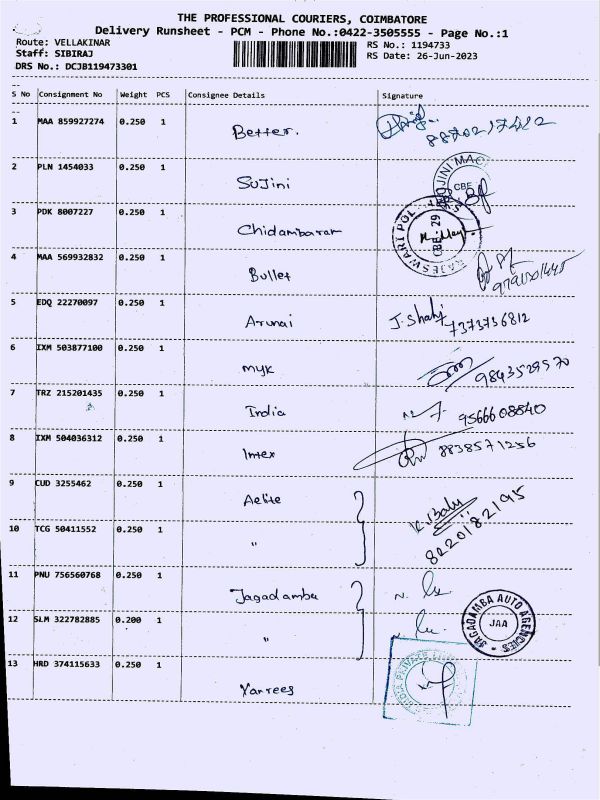 THE PROFESSIONAL COURIERS, COIMBATORE
Delivery Runsheet - PCM - Phone No.:0422-3505555 - Page No.:1
Route: VELLAKINAR
Staff: SIBIRAJ
DRS No.: DCJB119473301
RS No.: 1194733
RS Date: 26-Jun-2023
S No Consignment No Weight PCS Consignee Details Signature
1 MAA 859927274 0.250 1 Better.
2 PLN 1454033 0.250 1 Sujini CBE
3 PDK 8007227 0.250 1 Chidambaram RAJESWARI POL CBE 29
4 MAA 569932832 0.250 1 Bullet
5 EDQ 22270097 0.250 1 Arunai J. Shahj 7373736812
6 IXM 503877100 0.250 1 myk 9843529570
7 TRZ 215201435 0.250 1 India 9566608840
8 IXM 504036312 0.250 1 Intex 8838571256
9 CUD 3255462 0.250 1 Aelite K. Balu
10 TCG 50411552 0.250 1 " 8220182195
11 PNU 756560768 0.250 1 Jagadamba
12 SLM 322782885 0.200 1 " JAGADAMBA AUTO AGENCIES JAA
13 HRD 374115633 0.250 1 Vanrees